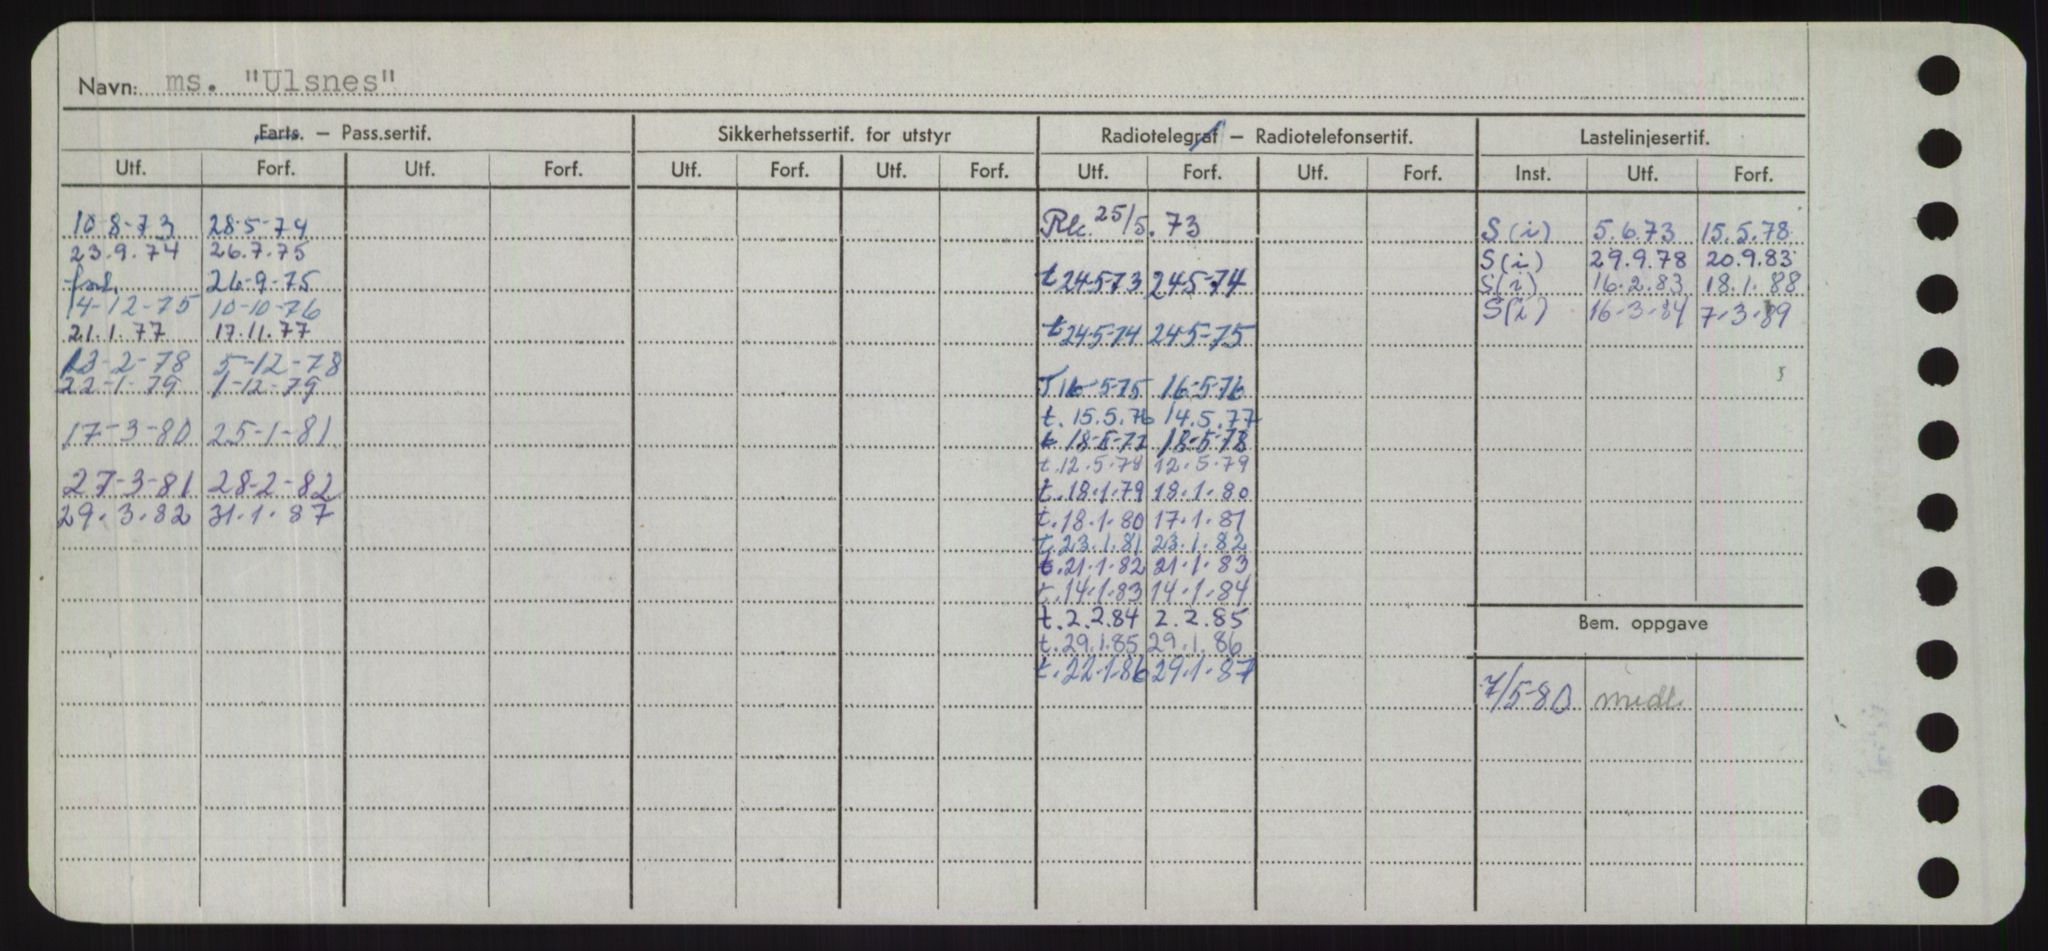 Navn: ms. "Ulsnes"
Farts. – Pass.sertif. Sikkerhetssertif. for utstyr Radiotelegraf – Radiotelefonsertif. Lastelinjesertif.
Utf. Forf. Utf. Forf. Utf. Forf. Utf. Forf. Utf. Forf. Utf. Forf. Inst. Utf. Forf.
10-8-73 28-5-74
23.9.74 26.7.75
26-9-75
14-12-75 10-10-76
21.1.77 17.11.77
13-2-78 5-12-78
22-1-79 1-12-79
17-3-80 25-1-81
27-3-81 28-2-82
29.3.82 31.1.87
25/5.73
t 24573 245-74
t 245-74 245-75
T 16-5-75 16-5-76
t. 15.5.76 14.5.77
t. 18-5-77 18-5-78
t. 12.5.78 12.5.79
t. 18.1.79 18.1.80
t. 18.1.80 17.1.81
t. 23.1.81 23.1.82
t. 21.1.82 21.1.83
t. 14.1.83 14.1.84
t. 2.2.84 2.2.85
t. 29.1.85 29.1.86
t. 22.1.86 29.1.87
S(i) 5.6.73 15.5.78
S(i) 29.9.78 20.9.83
S(i) 16.2.83 18.1.88
S(i) 16-3-84 7-3-89
Bem. oppgave
7/5-80 midl.